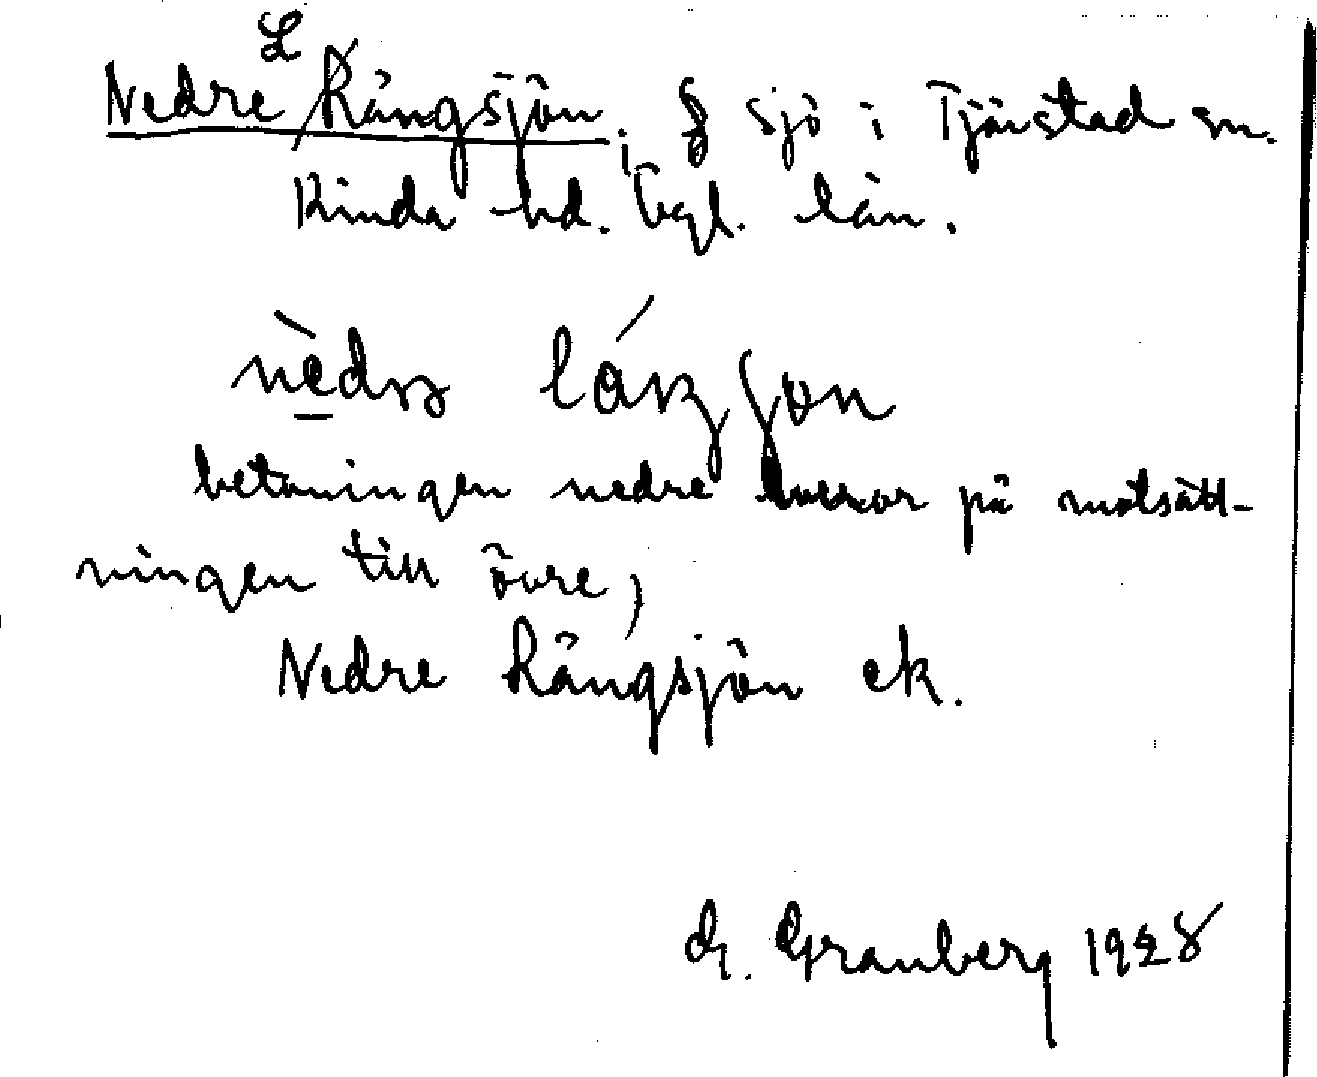 L
Nedre Rångsjön; sjö i Tjärstad sn.
Kinda hd. Ögl. län.
betoningen nedre beror på motsätt-
ningen till övre,
Nedre Rångsjön ek.
G. Granberg 1928